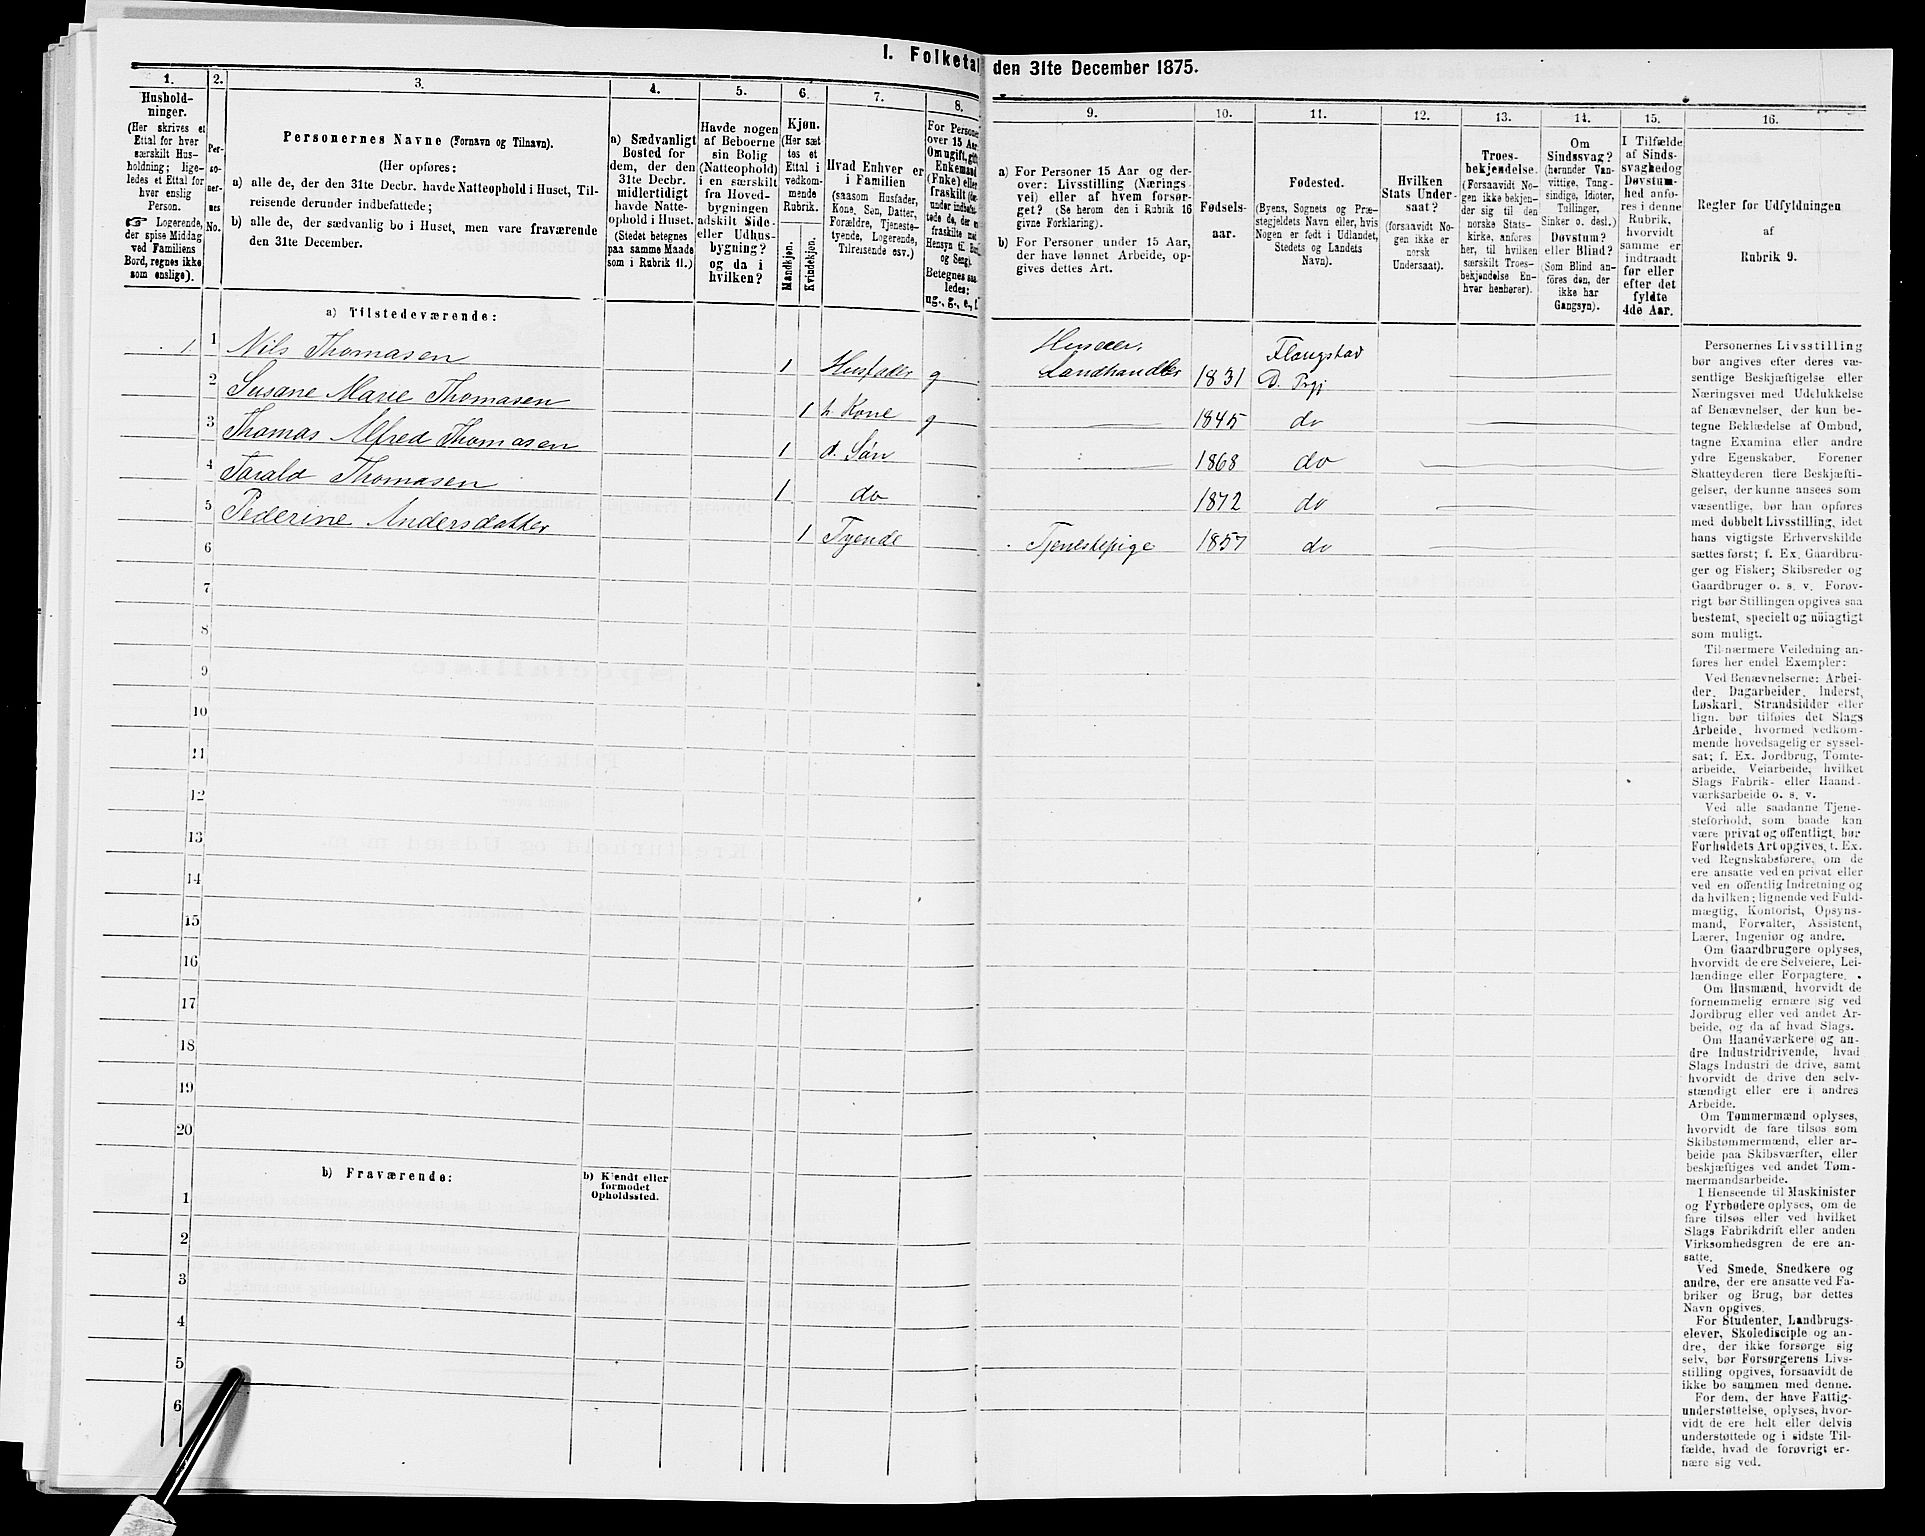 I. Folketal den 31te December 1875.
1.
Hushold-
ninger.
(Her skrives et
Ettal for hver
særskilt Hus-
holdning; lige-
ledes et Ettal for
hver enslig
Person.
☞ Logerende,
der spise Middag
ved Familiens
Bord, regnes ikke
som enslige).
2.
Per-
so-
ner-
nes
No.
3.
Personernes Navne (Fornavn og Tilnavn).
(Her opføres:
a) alle de, der den 31te Decbr. havde Natteophold i Huset, Til-
reisende derunder indbefattede;
b) alle de, der sædvanlig bo i Huset, men vare fraværende
den 31te December.
4.
a) Sædvanligt
Bosted for
dem, der den
31te Decbr.
midlertidigt
havde Natte-
ophold i Huset.
(Stedet betegnes
paa samme Maade
som i Rubrik 11.)
5.
Havde nogen
af Beboerne
sin Bolig
(Natteophold)
i en særskilt
fra Hoved-
bygningen
adskilt Side-
eller Udhus-
bygning?
og da i
hvilken?
6.
Kjøn.
(Her sæt
tes et
Ettal i
vedkom-
mende
Rubrik.
Mandkjøn.
Kvindekjøn.
7.
Hvad Enhver er
i Familien
(saasom Husfader,
Kone, Søn, Datter,
Forældre, Tjeneste-
tyende, Logerende,
Tilreisende osv.)
8.
For Persone
over 15 Aar
Om ugift, gift
Enkemand
(Enke) eller
fraskilt
og Seng).
Betegnes saa-
ledes:
ug., g., e., f.
9.
a) For Personer 15 Aar og der-
over: Livsstilling (Nærings
vei) eller af hvem forsør-
get? (Se herom den i Rubrik 16
givne Forklaring).
b) For Personer under 15 Aar,
der have lønnet Arbeide, op-
gives dettes Art.
10.
Fødsels-
aar.
11.
Fødested.
(Byens, Sognets og Præ-
stegjeldets Navn eller, hvis
Nogen er født i Udlandet,
Stedets og Landets
Navn).
12.
Hvilken
Stats Under-
saat?
(forsaavidt No-
gen ikke er
norsk
Undersaat).
13.
Troes-
bekjendelse.
(Forsaavidt No-
gen ikke bekjen-
der sig til den
norske Stats-
kirke, anføres
her, til hvilken
særskilt Troes-
bekjendelse En-
hver henhører).
14.
Om
Sindssvag?
(herunder Van-
vittige, Tung-
sindige, Idioter,
Tullinger,
Sinker o. desl.)
Døvstum?
eller Blind?
(Som Blind an-
føres den, der
ikke har
Gangsyn).
15.
I Tilfælde
af Sinds-
svaghed og
Døvstum-
hed anfø-
res i denne
Rubrik,
hvorvidt
samme er
indtraadt
før eller
efter det
fyldte
4de Aar.
16.
Regler for Udfyldningen
af
Rubrik 9.
a) Tilstedeværende:
1 1 Nils Thomasen 1 Husfader g Landhandler 1831 D. Prgj
2 Susane Marie Thomasen 1 h. Kone g 1845 do
3 Thomas Alfred Thomasen 1 d. Søn 1868 do
4 Tarald Thomasen 1 do 1872 do
5 Pederine Andersdatter 1 Tyende Tjenestepige 1857 do
6
7
8
9
10
11
12
13
14
15
16
17
18
19
20
b) Fraværende:
b) Kjendt eller
formodet
Opholdssted.
1
2
3
4
5
6
Personernes Livsstilling
bør angives efter deres væ-
sentlige Beskjæftigelse eller
Næringsvei med Udelukkelse
af Benævnelser, der kun be-
tegne Beklædelse af Ombud,
tagne Examina eller andre
ydre Egenskaber. Forener
Skatteyderen flere Beskjæfti-
gelser, der kunne ansees som
væsentlige, bør han opføres
med dobbelt Livsstilling, idet
hans vigtigste Erhvervskilde
sættes først; f. Ex. Gaardbru-
ger og Fisker; Skibsreder og
Gaardbruger o. s. v. Forøv-
rigt bør Stillingen opgives saa
bestemt, specielt og nöiagtigt
som muligt.
Til nærmere Veiledning an-
føres her endel Exempler:
Ved Benævnelserne: Arbei-
der, Dagarbeider, Inderst,
Løskarl, Strandsidder eller
lign. bør tilføies det Slags
Arbeide, hvormed vedkom-
mende hovedsagelig er syssel-
sat; f. Ex. Jordbrug, Tomte-
arbeide, Veiarbeide, hvilket
Slags Fabrik- eller Haand-
værksarbeide o. s. v.
Ved alle saadanne Tjene-
steforhold, som baade kan
være privat og offentligt, bør
Forholdets Art opgives, f. Ex.
ved Regnskabsførere, om de
ere ansatte ved en privat eller
ved en offentlig Indretning og
da hvilken; lignende ved Fuld-
mægtig, Kontorist, Opsyns-
mand, Forvalter, Assistent,
Lærer, Ingeniør og andre.
Om Gaardbrugere oplyses,
hvorvidt de ere Selveiere, Lei-
lændinge eller Forpagtere.
Om Husmænd, hvorvidt de
fornemmelig ernære sig ved
Jordbrug eller ved andet Ar-
beide, og da af hvad Slags.
Om Haandværkere og an-
dre Industridrivende, hvad
Slags Industri de drive, samt
hvorvidt de drive den selv-
stændigt eller ere i andres
Arbeide.
Om Tømmermænd oplyses,
hvorvidt de fare tilsøs som
Skibstømmermænd, eller ar-
beide paa Skibsværfter, eller
beskjæftiges ved andet Tøm-
mermandsarbeide.
I Henseende til Maskinister
og Fyrbødere oplyses, om de
fare tilsøs eller ved hvilket
Slags Fabrikdrift eller anden
Virksomhedsgren de ere an-
satte.
Ved Smede, Snedkere og
andre, der ere ansatte ved Fa-
briker og Brug, bør dettes
Navn opgives.
For Studenter, Landbrugs-
elever, Skoledisciple og an-
dre, der ikke forsørge sig
selv, bør Forsørgerens Livs-
stilling opgives, forsaavidt de
ikke bo sammen med denne.
For dem, der have Fattig-
understøttelse, oplyses, hvor-
vidt de ere helt eller delvis
understøttede og i sidste Til-
fælde, hvad de forøvrigt er-
nære sig ved.